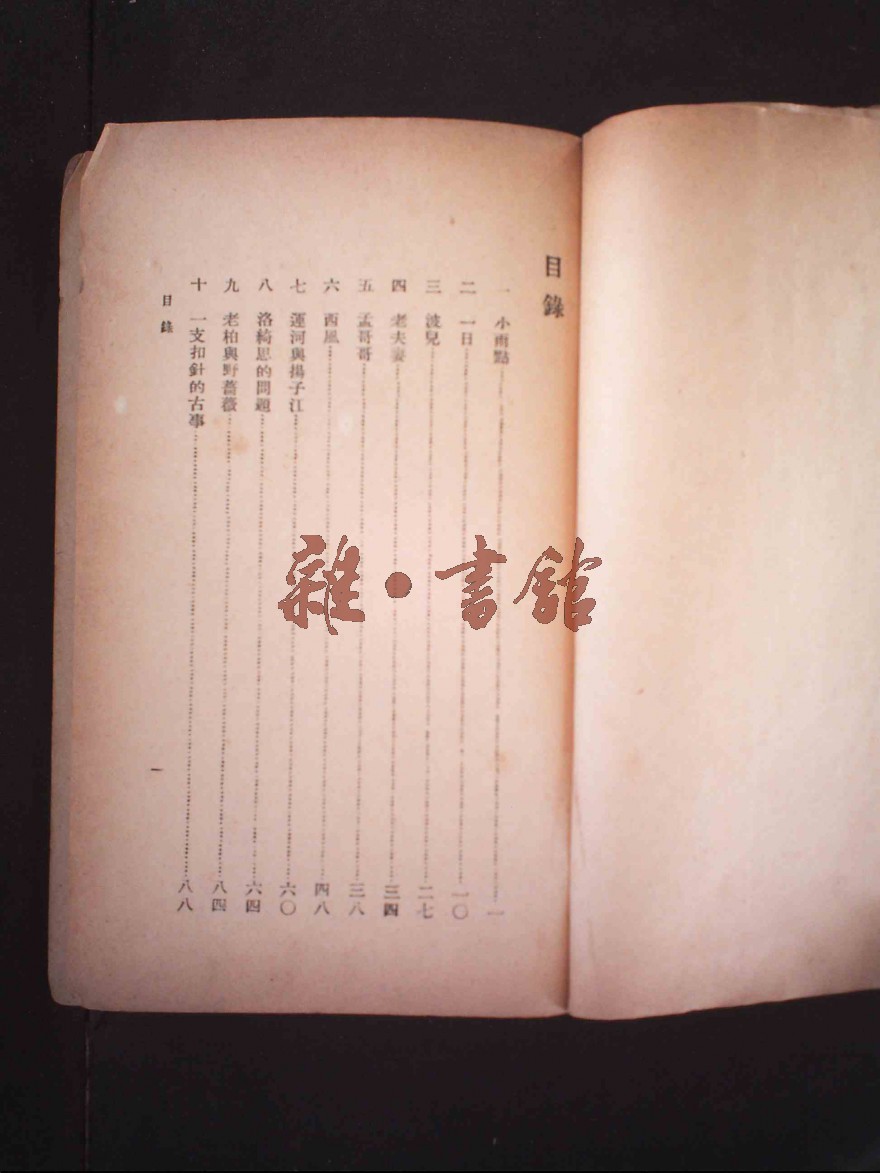 目錄
一 小雨點……一
二 一日……一〇
三 波兒……二七
四 老夫妻……三四
五 孟哥哥……三八
六 西風……四八
七 運河與揚子江……六〇
八 洛綺思的問題……六四
九 老柏與野薔薇……八四
十 一支扣針的古事……八八
目錄
一
雜·書館